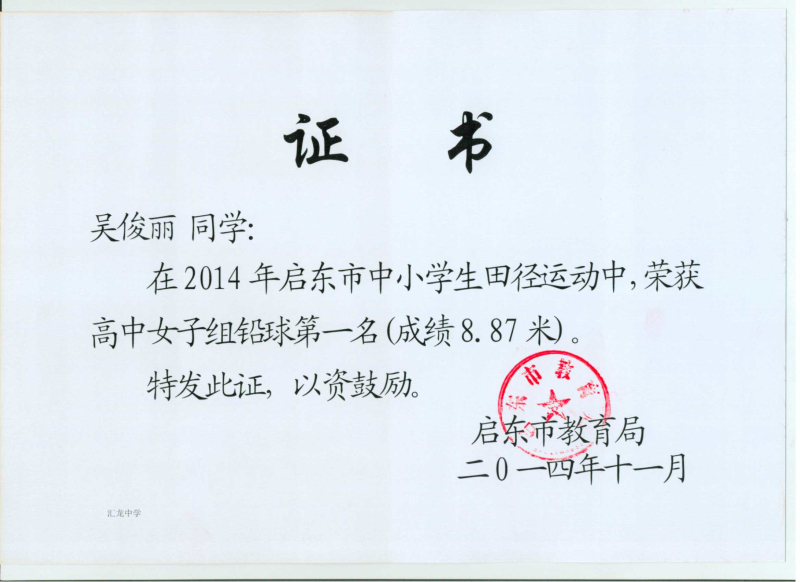 证 书
吴俊丽 同学:
在2014年启东市中小学生田径运动中,荣获
高中女子组铅球第一名(成绩8.87米)。
特发此证,以资鼓励。
启东市教育局
启东市教育局
二0一四年十一月
汇龙中学